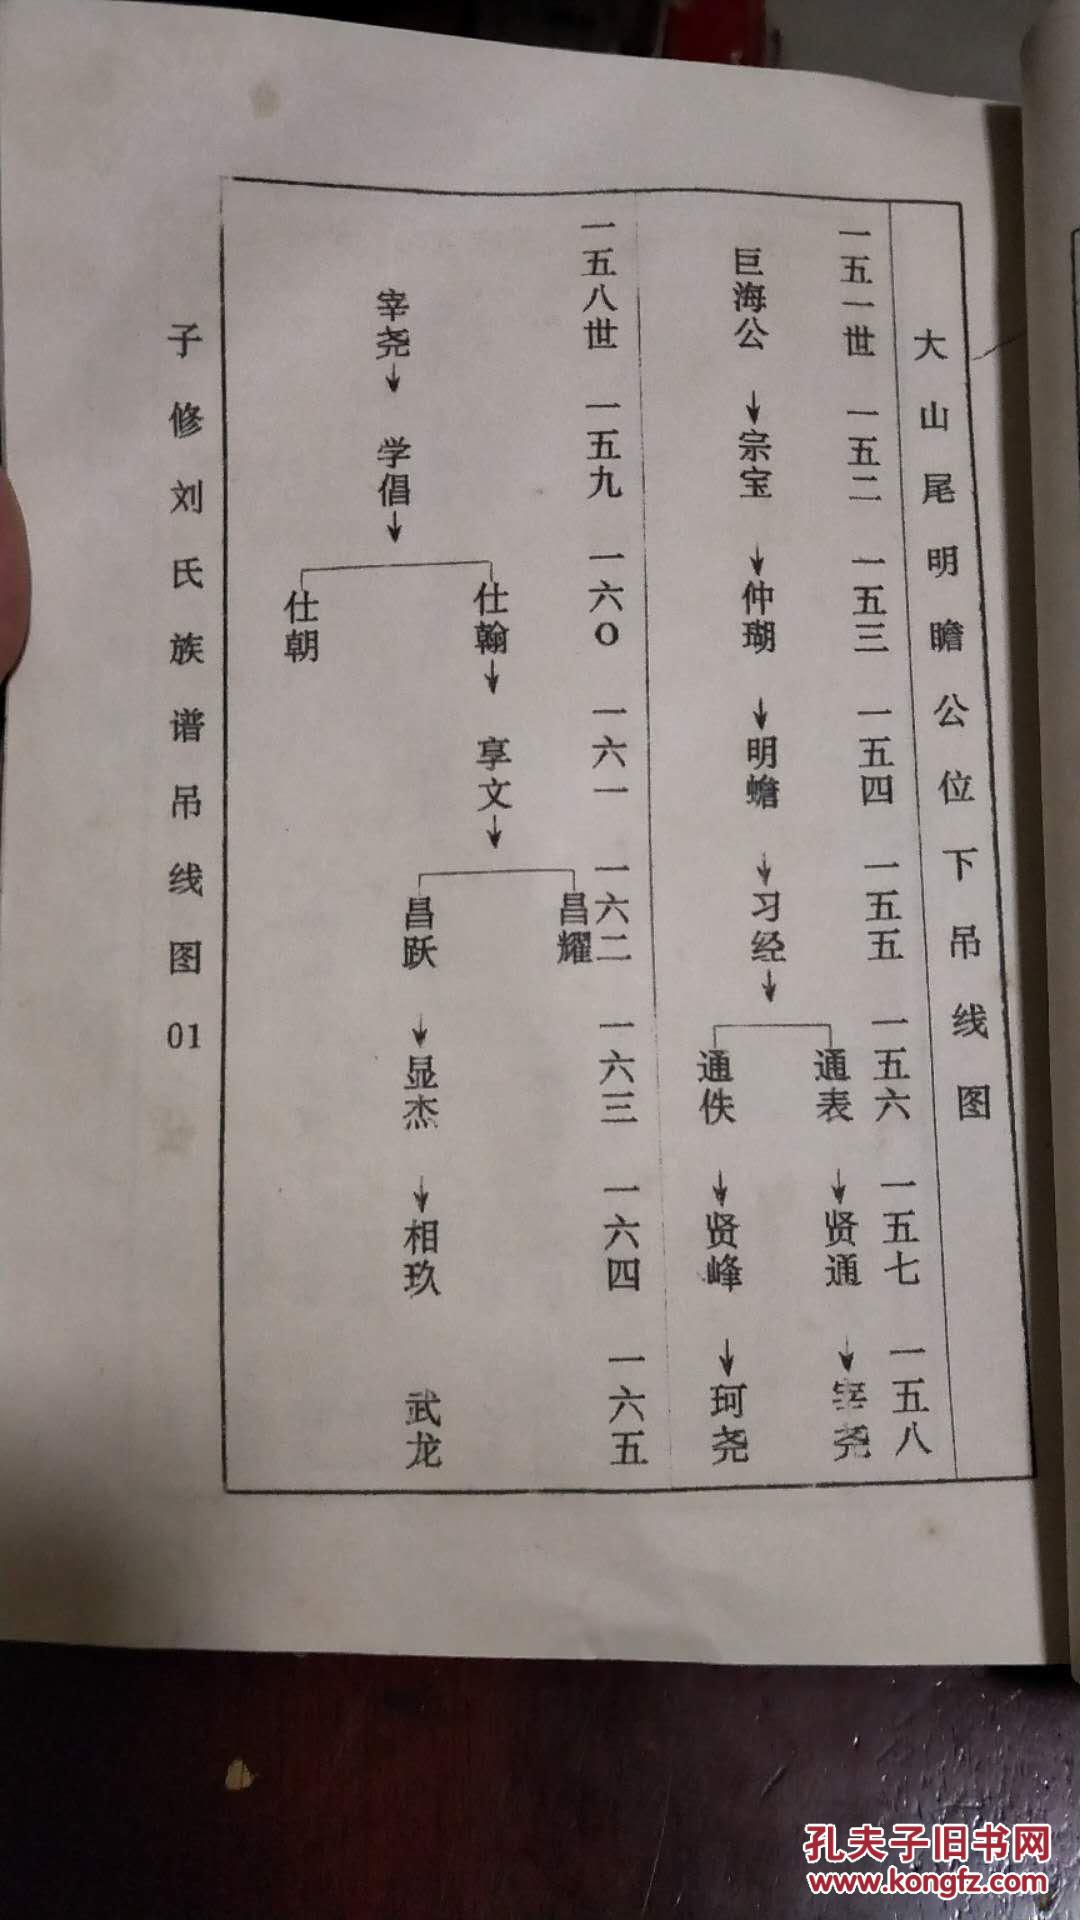 大山尾明瞻公位下吊线图
一五一世 一五二 一五三 一五四 一五五 一五六 一五七 一五八
通表→贤通→宰尧
巨海公→宗宝→仲瑚→明蟾→习经→
通佚→贤峰→珂尧
一五八世 一五九 一六〇 一六一 一六二 一六三 一六四 一六五
昌耀
仕翰→享文→
宰尧→学倡→
昌跃→显杰→相玖 武龙
仕朝
子修刘氏族谱吊线图01
孔夫子旧书网
www.kongfz.com